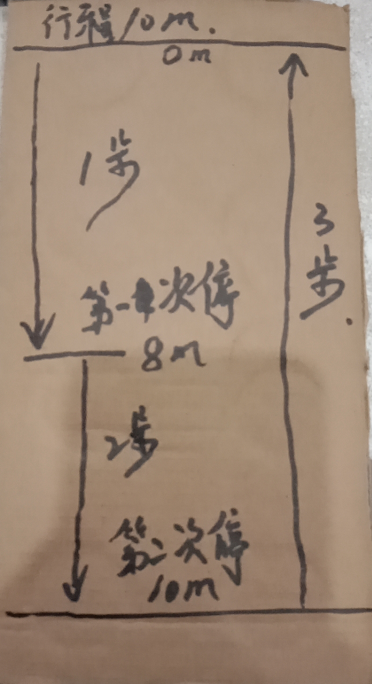 行程10m.
0m
1步
3步.
第一次停
8m
2步
第二次停
10m